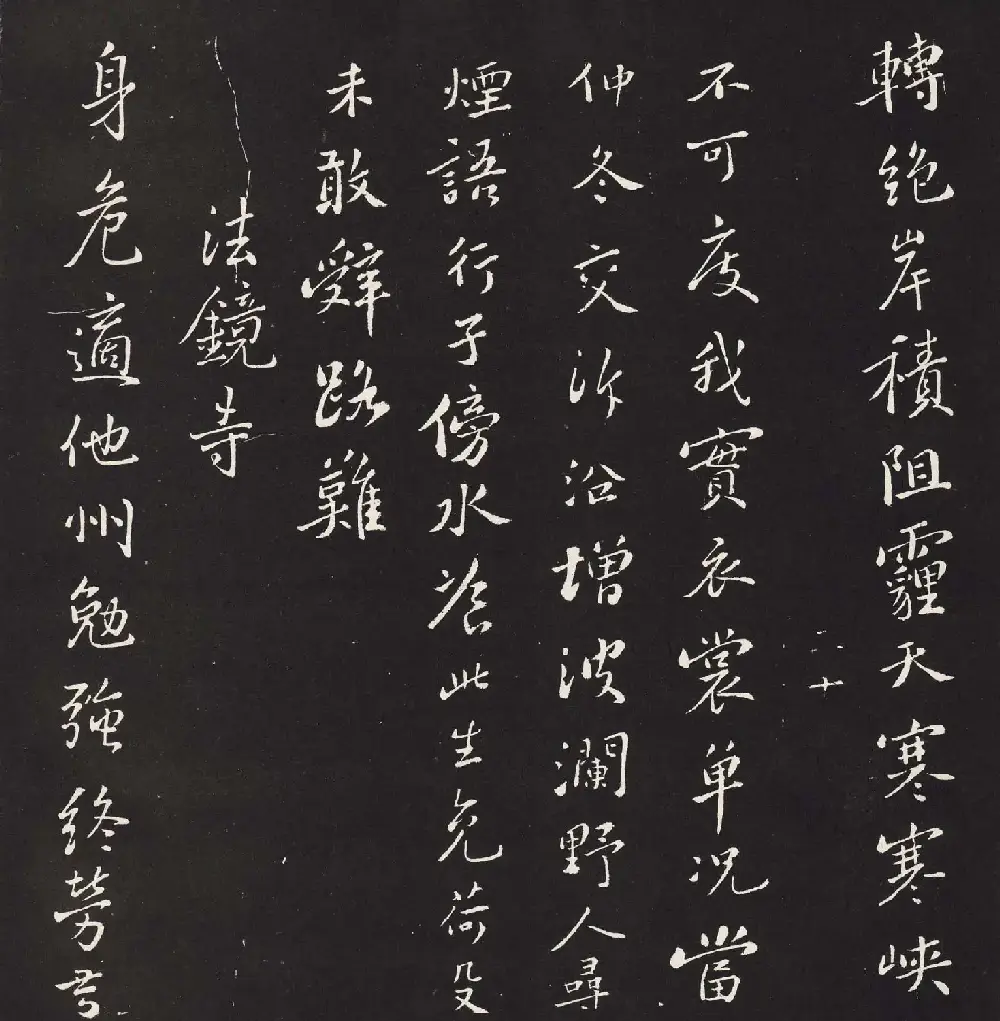 轉絶岸積阻霾天寒寒峽
二十
不可度我實衣裳单况當
仲冬交泝沿增波瀾野人尋
煙語行子傍水飡此生免荷殳
未敢辤路難
法鏡寺
身危適他州勉強終勞苦